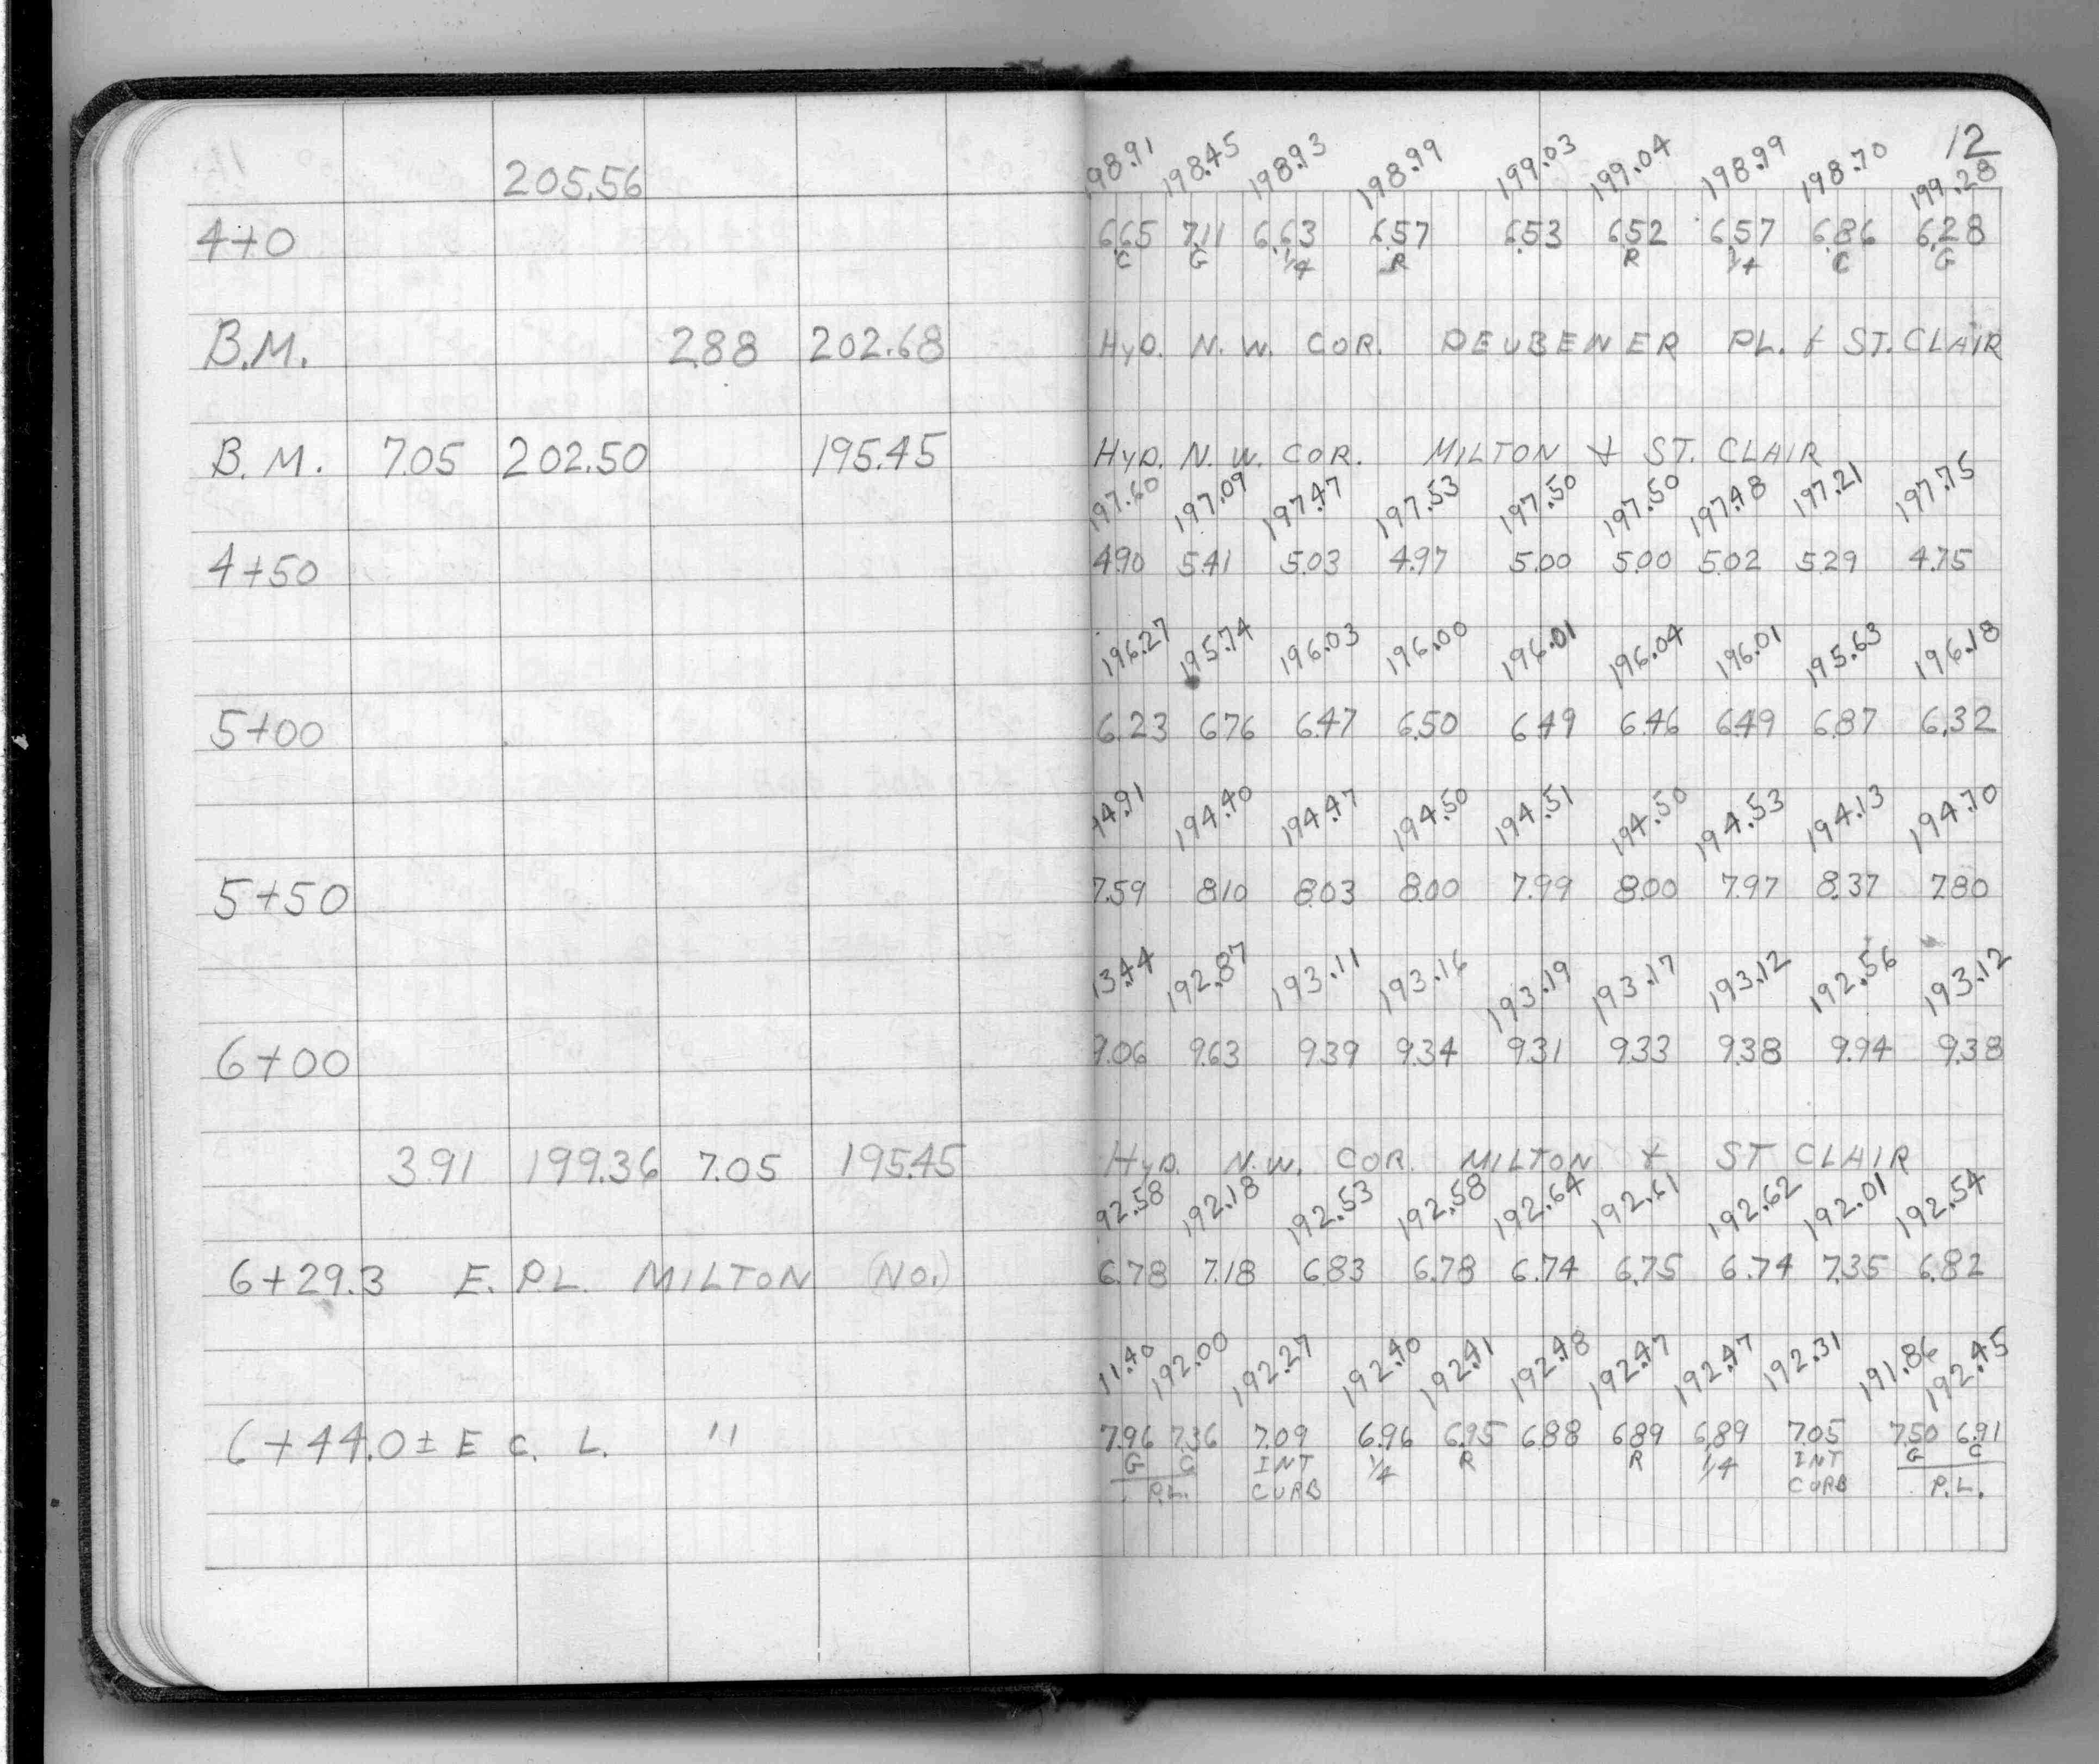 12
205.56 198.91 198.45 198.93 198.99 199.03 199.04 198.99 198.70 199.28
4+0 6.65 7.11 6.63 6.57 6.53 6.52 6.57 6.86 6.28
C G 1/4 R R 1/4 C G
B.M. 2.88 202.68 HYD. N.W. COR. DEUBENER PL. & ST. CLAIR
B.M. 7.05 202.50 195.45 HYD. N.W. COR. MILTON & ST. CLAIR
197.60 197.09 197.47 197.53 197.50 197.50 197.48 197.21 197.75
4+50 4.90 5.41 5.03 4.97 5.00 5.00 5.02 5.29 4.75
196.27 195.74 196.03 196.00 196.01 196.04 196.01 195.63 196.18
5+00 6.23 6.76 6.47 6.50 6.49 6.46 6.49 6.87 6.32
94.91 194.40 194.47 194.50 194.51 194.50 194.53 194.13 194.70
5+50 7.59 8.10 8.03 8.00 7.99 8.00 7.97 8.37 7.80
93.44 192.87 193.11 193.16 193.19 193.17 193.12 192.56 193.12
6+00 9.06 9.63 9.39 9.34 9.31 9.33 9.38 9.94 9.38
3.91 199.36 7.05 195.45 HYD. N.W. COR. MILTON & ST CLAIR
92.58 192.18 192.53 192.58 192.64 192.61 192.62 192.01 192.54
6+29.3 E. P.L. MILTON (NO.) 6.78 7.18 6.83 6.78 6.74 6.75 6.74 7.35 6.82
91.40 192.00 192.27 192.40 192.41 192.48 192.47 192.47 192.31 191.86 192.45
6+44.0± E C. L. " 7.96 7.36 7.09 6.96 6.95 6.88 6.89 6.89 7.05 7.50 6.91
G C INT 1/4 R R 1/4 INT G C
P.L. CURB CURB P.L.